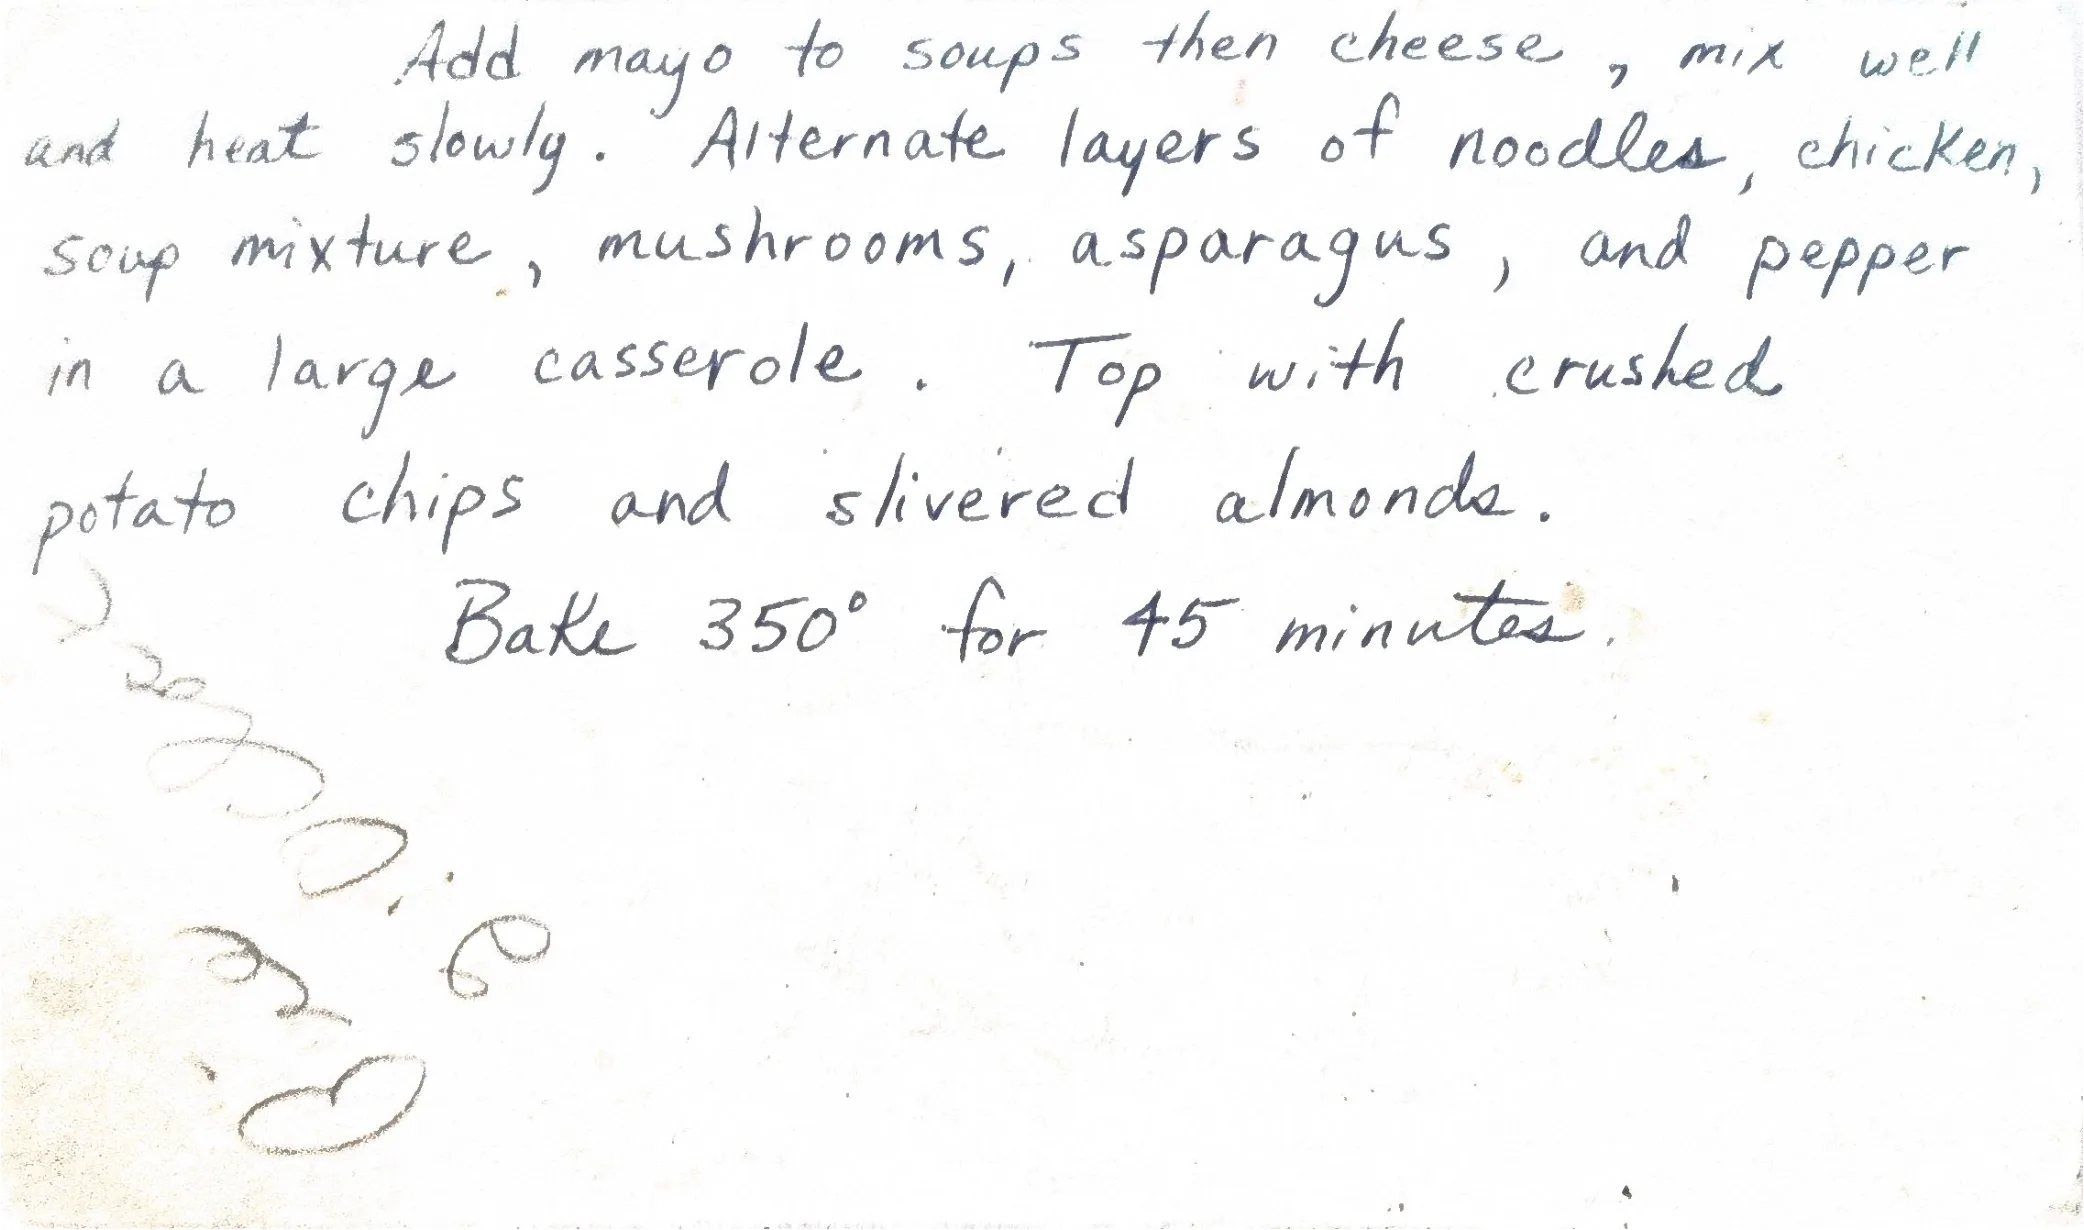 Add mayo to soups then cheese, mix well
and heat slowly. Alternate layers of noodles, chicken,
soup mixture, mushrooms, asparagus, and pepper
in a large casserole. Top with crushed
potato chips and slivered almonds.
Bake 350° for 45 minutes.